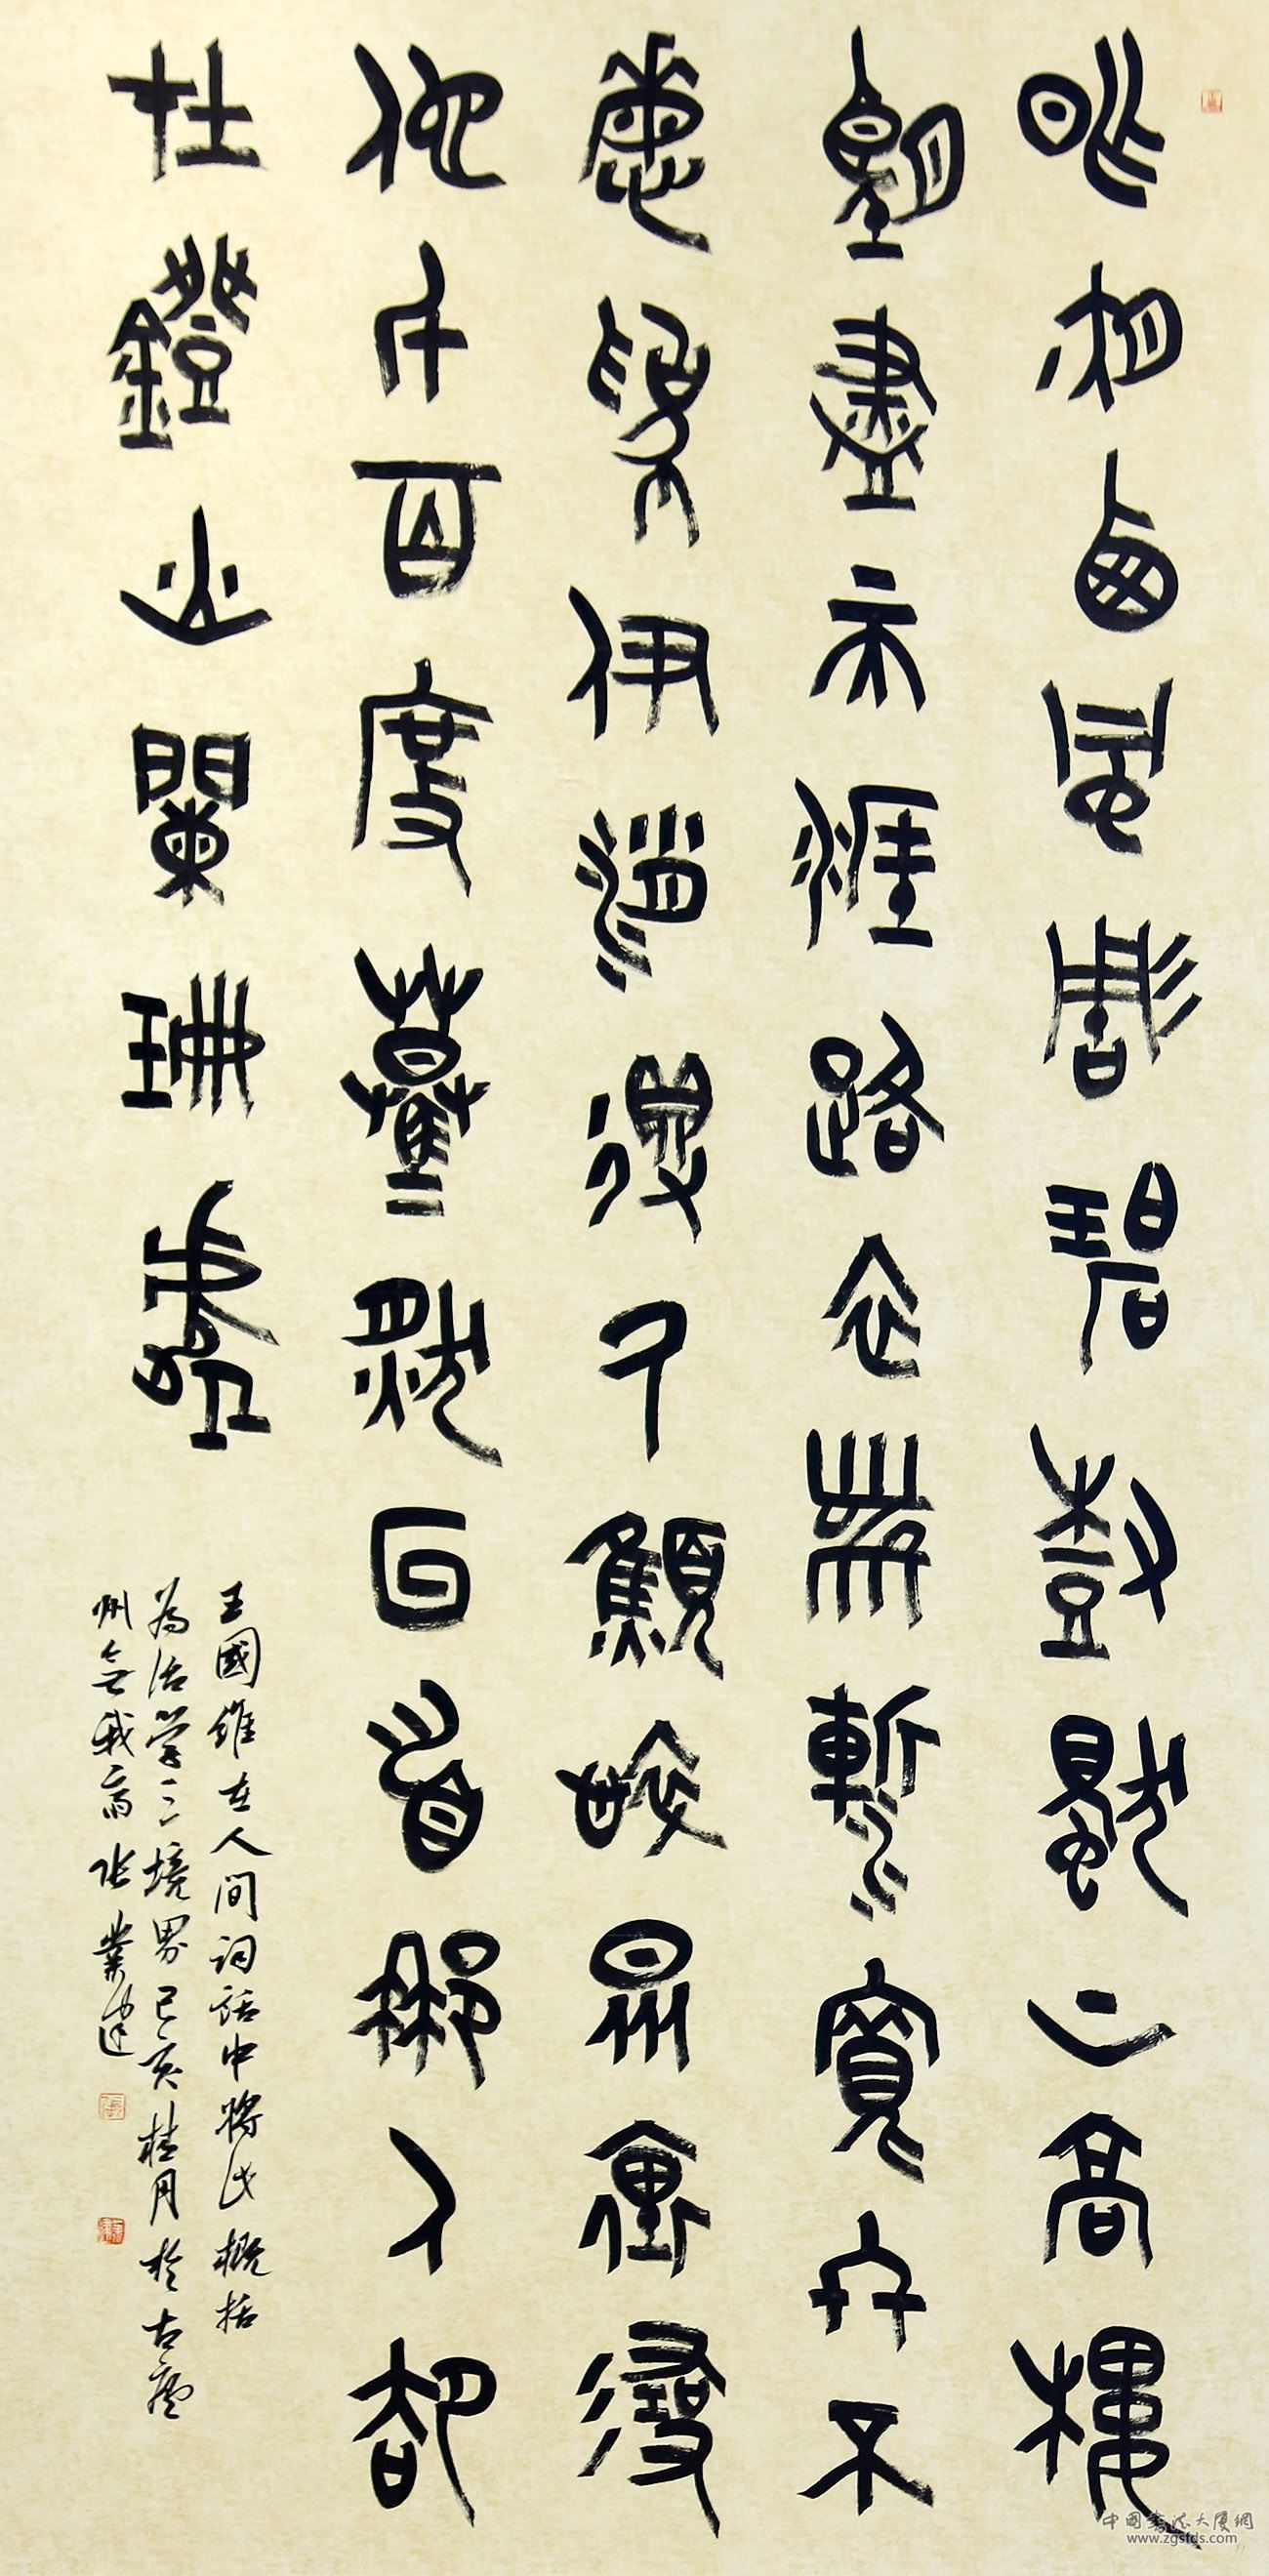 昨夜西風彫碧樹獨上高樓
望盡天涯路衣帶漸寬終不
悔為伊消得人顦悴眾裏尋
他千百度驀然回首那人卻
在鐙火闌珊處
王國維在人間詞話中將此概括
為治學三境界己亥桂月於古廬
州無我齋張業建
中國書法大厦網
www.zgsfds.com